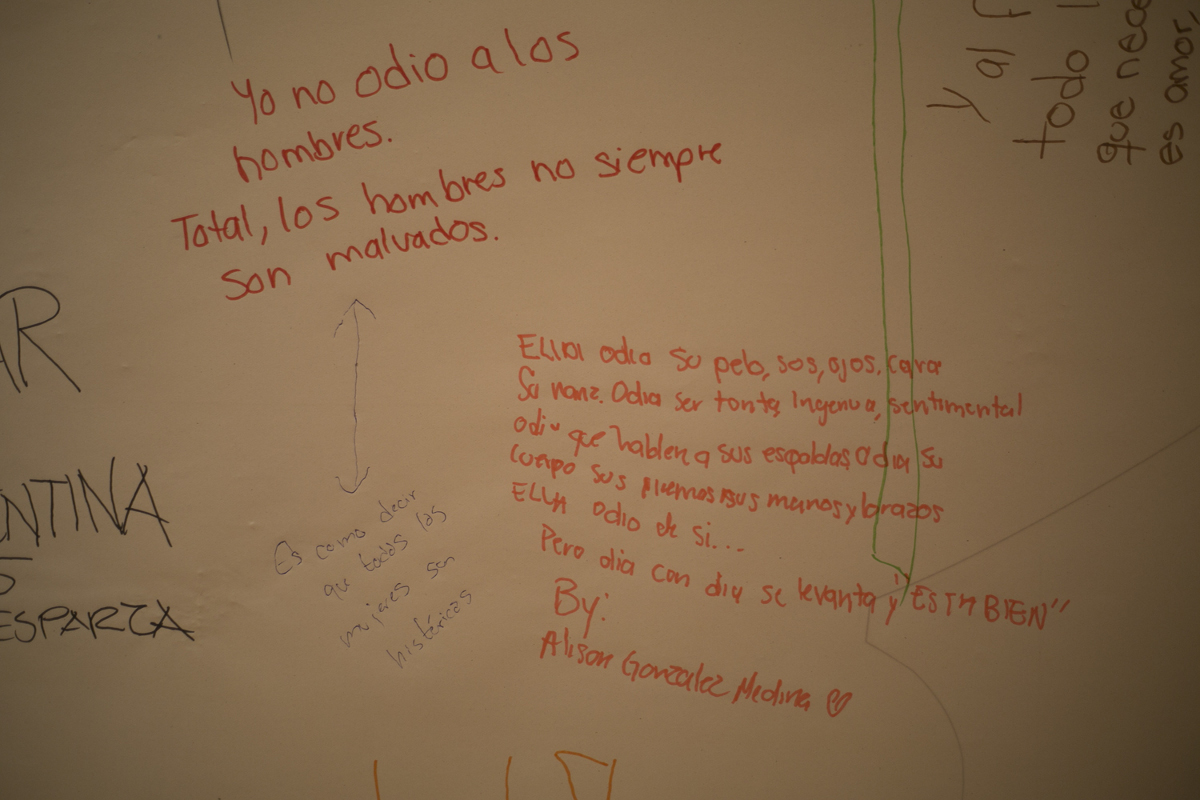 Yo no odio a los
hombres.
Total, los hombres no siempre
son malvados.
Es como decir
que todas las
mujeres son
histéricas
ELLA odia su pelo, sos, ojos, cara
Su nariz. Odia ser tonta, Ingenua, sentimental
odia que hablen a sus espaldas, odia su
cuerpo sus piernas sus manos y brazos
ELLA odio de si...
Pero dia con dia se levanta y "ESTA BIEN"
By:
Alison Gonzalez Medina
AR
ENTINA
S
ESPARZA
Y al f
todo l
que nece
es amor,